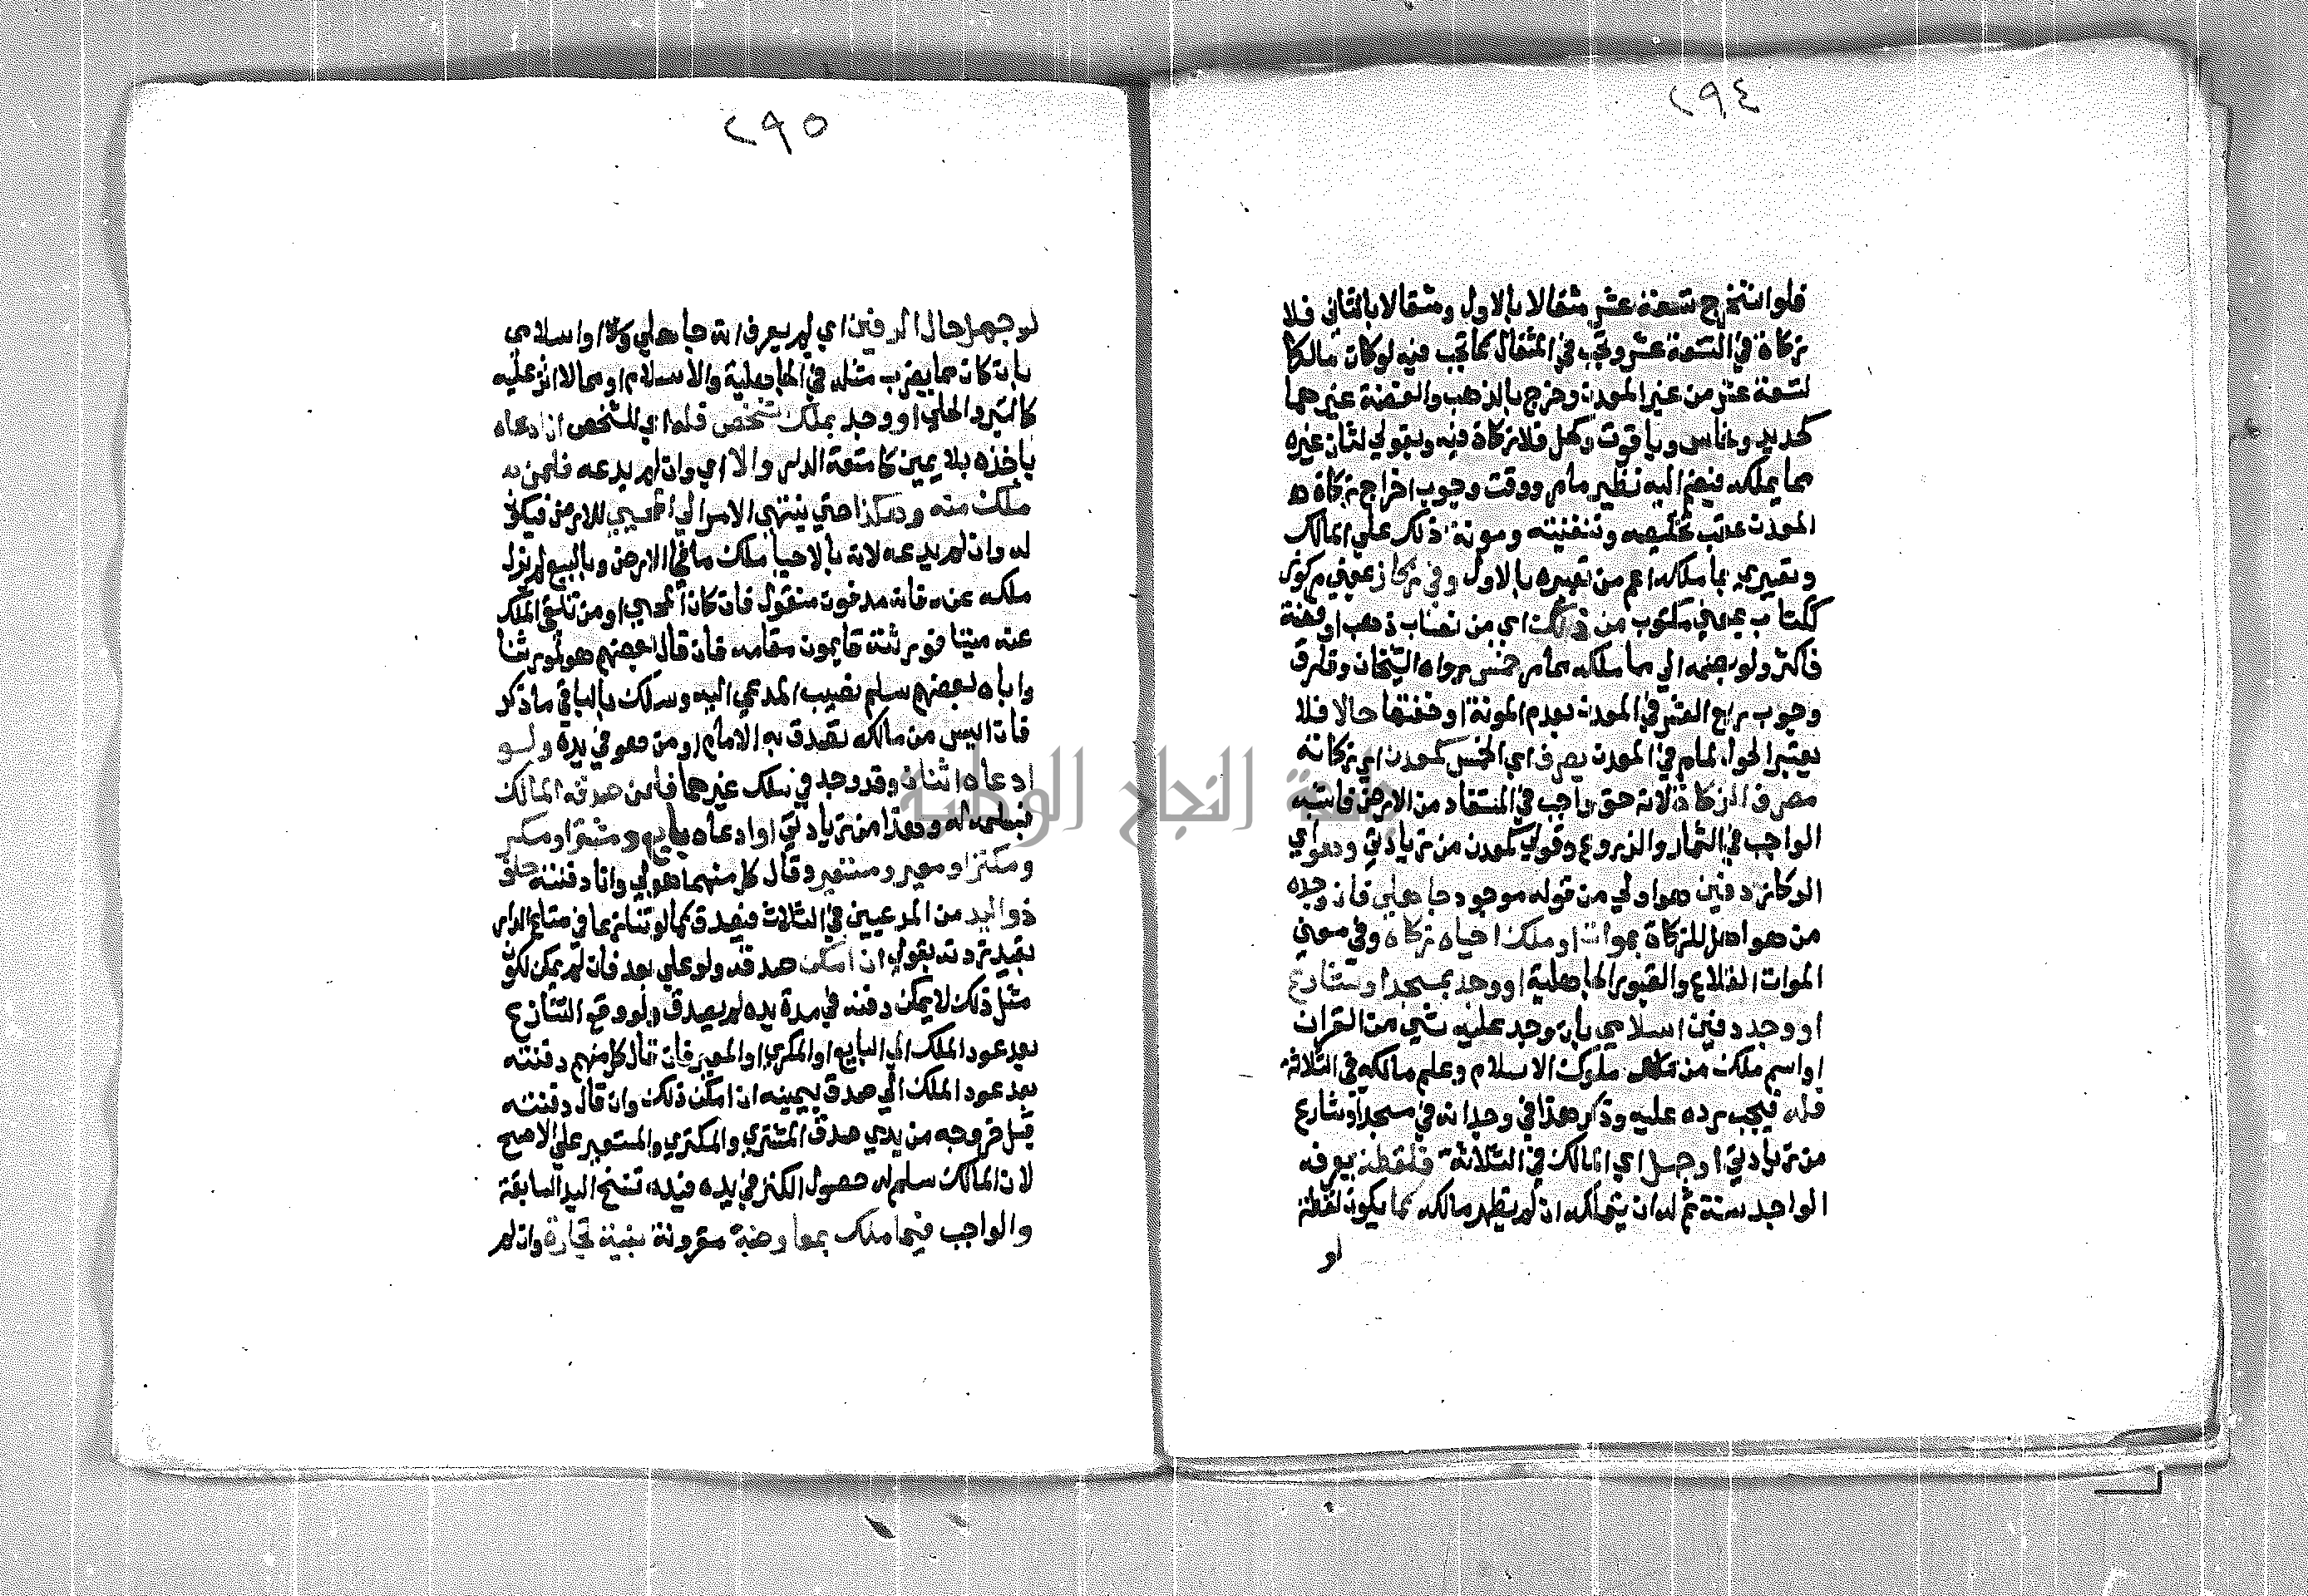 ٢٩٤
فلو استخرج تسعة عشر مثقالا بالاول ومثقالا بالثاني فلا
زكاة في التسعة عشر وتجب في المثقال كما تجب فيه لو كان مالكا
لتسعة عشر من غير المعدن وخرج بالذهب والفضة غيرهما
كحديد ونحاس وياقوت وكحل فلا زكاة فيه وبقولي لثان غيره
مما يملكه فيضم اليه نظير ما مر ووقت وجوب اخراج زكاة
المعدن عقب تخليصه وتنقيته ومونة ذلك علي المالك
وتعبيري بما ملكه اعم من تعبيره بالاول وفي ركاز بمعني مركوز
ككتاب بمعني مكتوب من ذلك اي من نصاب ذهب او فضة
فاكثر ولو بضمه الي ما ملكه مما مر خمس رواه الشيخان وفارق
وجوب ربع العشر في المعدن بعدم المونة او خفتها حالا فلا
يعتبر الحول لما مر في المعدن يصرف اي الخمس كمعدن اي زكاته
مصرف الزكاة لانه حق واجب في المستفاد من الارض فاشبه
الواجب في الثمار والزروع وقولي كمعدن من زيادتي وهو اي
الركاز دفين هو اولي من قوله موجود جاهلي فان وجده
من هو اهل للزكاة بموات او ملك احياه زكاه وفي معني
الموات القلاع والقبور الجاهلية او وجد بمسجد او شارع
او وجد دفين اسلامي بان وجد عليه شي من القران
او اسم ملك من ملوك الاسلام وعلم مالكه في الثلاثة
فله فيجب رده عليه وذكر هذا في وجدانه في مسجد او شارع
من زيادتي او جهل اي المالك في الثلاثة فلقطة يعرفه
الواجد سنة ثم له ان يتملكه ان لم يظهر مالكه كما يكون لقطة
لو
٢٩٥
لو جهل حال الدفين اي لم يعرف انه جاهلي او اسلامي
بان كان مما يضرب مثله في الجاهلية والاسلام او مما لا اثر عليه
كالتبر والحلي او وجد بملك شخص فله اي للشخص ان ادعاه
ياخذه بلا يمين كامتعة الدار والا اي وان لم يدعه فلمن
ملك منه وهكذا حتي ينتهي الامر الي المحيي للارض فيكون
له وان لم يدعه لانه بالاحيا ملك ما في الارض وبالبيع لم يزل
ملكه عنه فانه مدفون منقول فان كان المحيي او من تلقي الملك
عنه ميتا فورثته قايمون مقامه فان قال بعضهم هو لمورثنا
واباه بعضهم سلم نصيب المدعي اليه وسلك بالباقي ما ذكر
فان ايس من مالكه تصدق به الامام او من هو في يده ولو
ادعاه اثنان وقد وجد في ملك غيرهما فلمن صدقه المالك
فيسلم له وهذا من زيادتي او ادعاه بايع ومشتر او مكر
ومكتر او معير ومستعير وقال كل منهما هو لي وانا دفنته حلف
ذو اليد من المدعيين في الثلاث فيصدق كما لو تنازعا في متاع الدار
بقيد زدته بقولي ان امكن صدقه ولو علي بعد فان لم يمكن لكون
مثل ذلك لا يمكن دفنه في مدة يده لم يصدق ولو وقع التنازع
بعد عود الملك الي البايع او المكري او المعير فان قال كل منهم دفنته
بعد عود الملك الي صدق بيمينه ان امكن ذلك وان قال دفنته
قبل خروجه من يدي صدق المشتري والمكتري والمستعير علي الاصح
لان المالك سلم له حصول الكنز في يده فيده تنسخ اليد السابقة
والواجب فيما ملك بمعاوضة مقرونة بنية تجارة وان لم
جامعة النجاح الوطنية